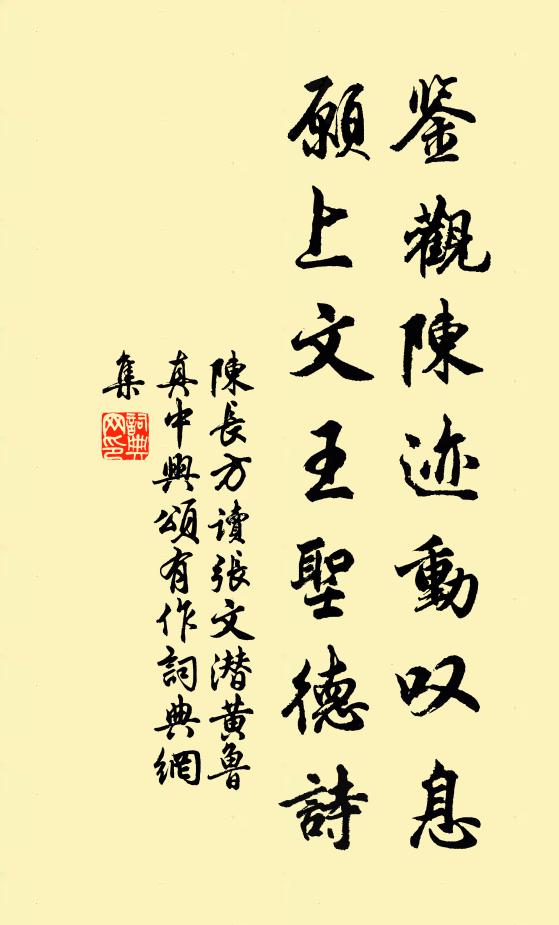 鉴觀陳迹動叹息
願上文王聖德詩
陳長方讀張文潜黄魯
真中興頌有作詞典網
集
詞典
网印